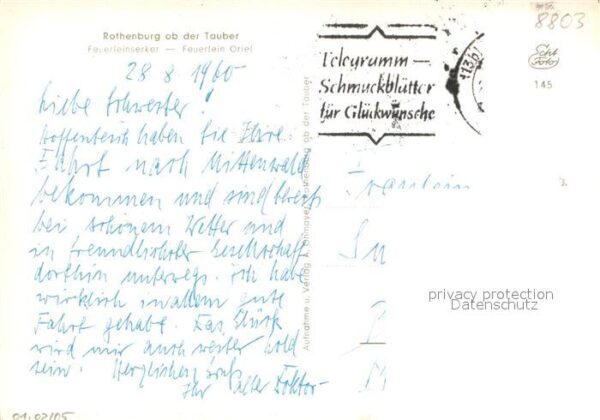 Rothenburg ob der Tauber
Feuerleinserker — Feuerlein Oriel
28 8 1960
Liebe Schwester!
Hoffentlich haben Sie Ihre
Fahrt nach Mittenwald
bekommen und sind bereits
bei schönem Wetter und
in freundlichster Gesellschaft
dorthin unterwegs. Ich habe
wirklich in allem gute
Fahrt gehabt. Das Glück
wird mir auch weiter hold
sein. Herzlichen Gruß
Ihr alter Doktor
Aufnahme u. Verlag Rothenburg ob der Tauber
Telegramm —
Schmuckblätter
für Glückwünsche
8803
Echt
Foto
145
Fräulein
privacy protection
Datenschutz
01.02/05